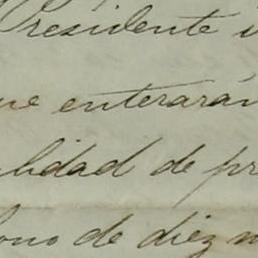 Presidente
ue enterarán
lidad de pr
ono de diez m